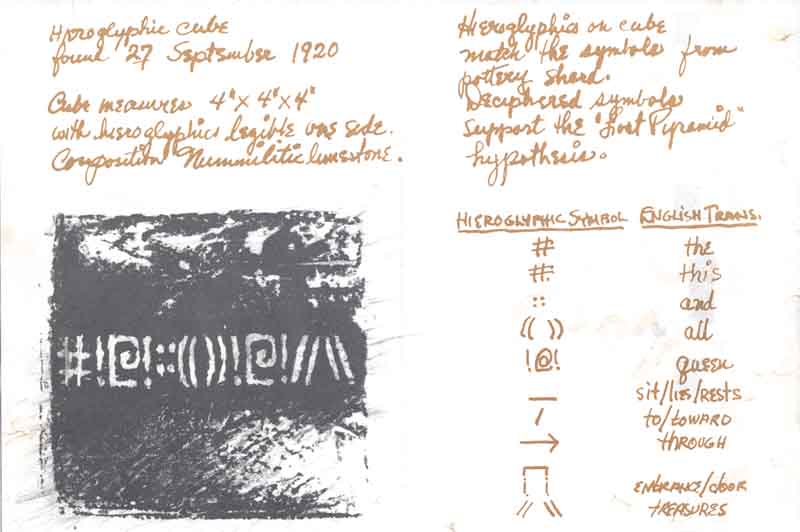 Hieroglyphic cube
found 27 September 1920
Cube measures 4"x 4"x 4"
with hieroglyphics legible one side.
Composition Nummilitic limestone.
#!@!::(())!@!//\\
Hieroglyphics on cube
match the symbols from
pottery shard.
Deciphered symbols
support the "Lost Pyramid"
hypothesis.
HIEROGLYPHIC SYMBOL ENGLISH TRANS.
# the
#. this
:: and
(( )) all
!@! queen
— sit/lies/rests
/ to/toward
→ through
entrance/door
// \\ treasures